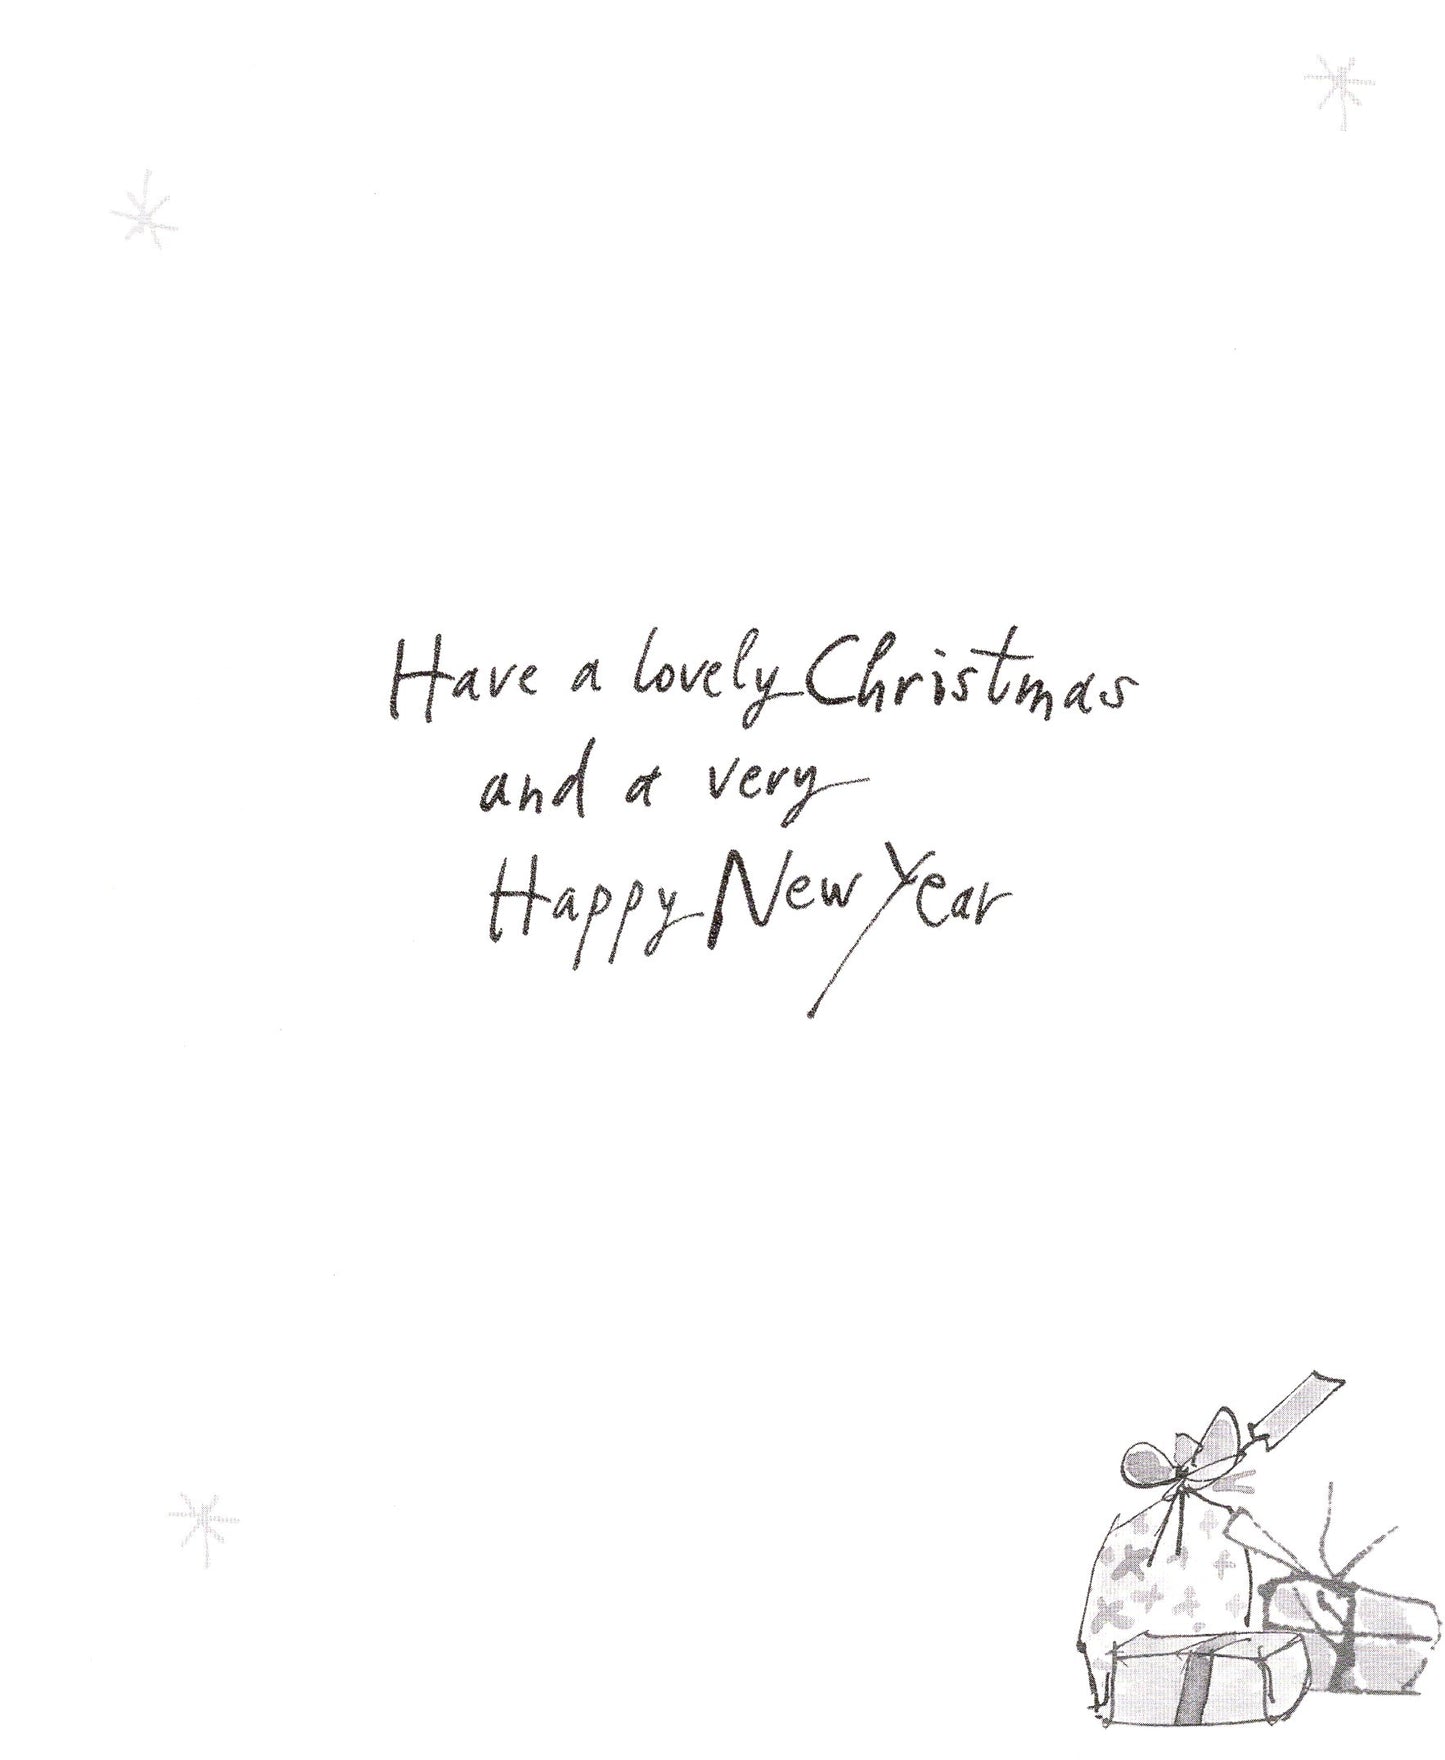 Have a lovely Christmas
and a very
Happy New Year